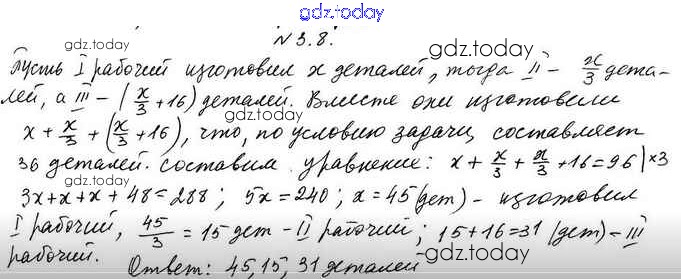 gdz.today
№3.8.
Пусть I рабочий изготовил x деталей, тогда II - x/3 дета-
лей, а III - (x/3 + 16) деталей. Вместе они изготовили
x + x/3 + (x/3 + 16), что, по условию задачи, составляет
36 деталей. Составим уравнение: x + x/3 + x/3 + 16 = 96 | ×3
3x + x + x + 48 = 288; 5x = 240; x = 45 (дет) - изготовил
I рабочий, 45/3 = 15 дет - II рабочий; 15 + 16 = 31 (дет) - III
рабочий.
Ответ: 45, 15, 31 деталей
gdz.today
gdz.today
gdz.today
gdz.today
gdz.today
gdz.today
gdz.today
gdz.today